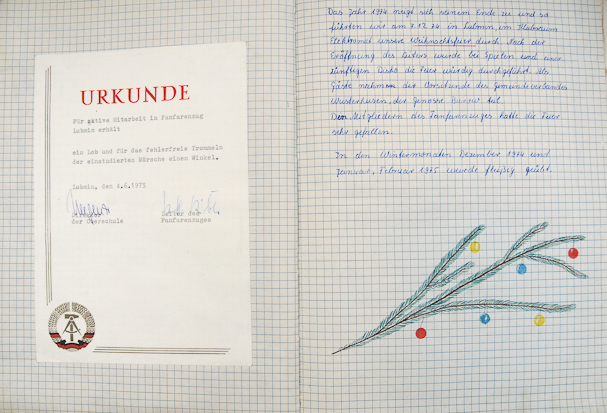 URKUNDE
Für aktive Mitarbeit im Fanfarenzug
Lubmin erhält
ein Lob und für das fehlerfreie Trommeln
der einstudierten Märsche einen Winkel.
Lubmin, den 4.6.1975
Direktor
der Oberschule
Leiter des
Fanfarenzuges
Das Jahr 1974 neigt sich seinem Ende zu und so
führten wir am 7.12.74 in Lubmin, im Klubraum
Elektromat unsere Weihnachtsfeier durch. Nach der
Eröffnung des Leiters wurde bei Spielen und einer
zünftigen Disko die Feier würdig durchgeführt. Als
Gäste nahmen der Vorsitzende des Gemeindeverbandes
Wusterhusen, der Genosse teil.
Den Mitgliedern des Fanfarenzuges hatte die Feier
sehr gefallen.
In den Wintermonaten Dezember 1974 und
Januar, Februar 1975 wurde fleißig geübt.